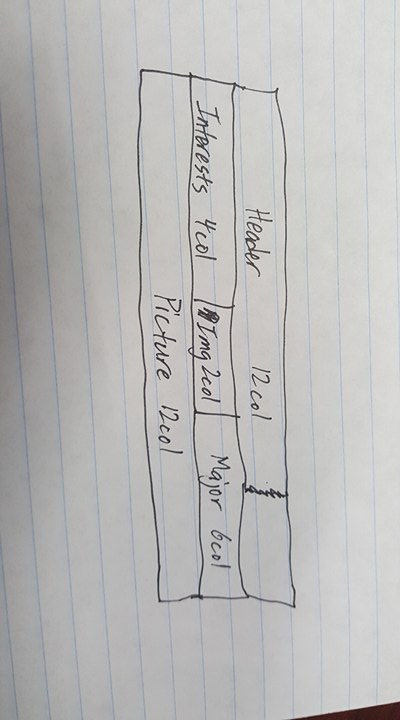 Header 12col
Interests 4col
Img 2col
Major 6col
Picture 12col